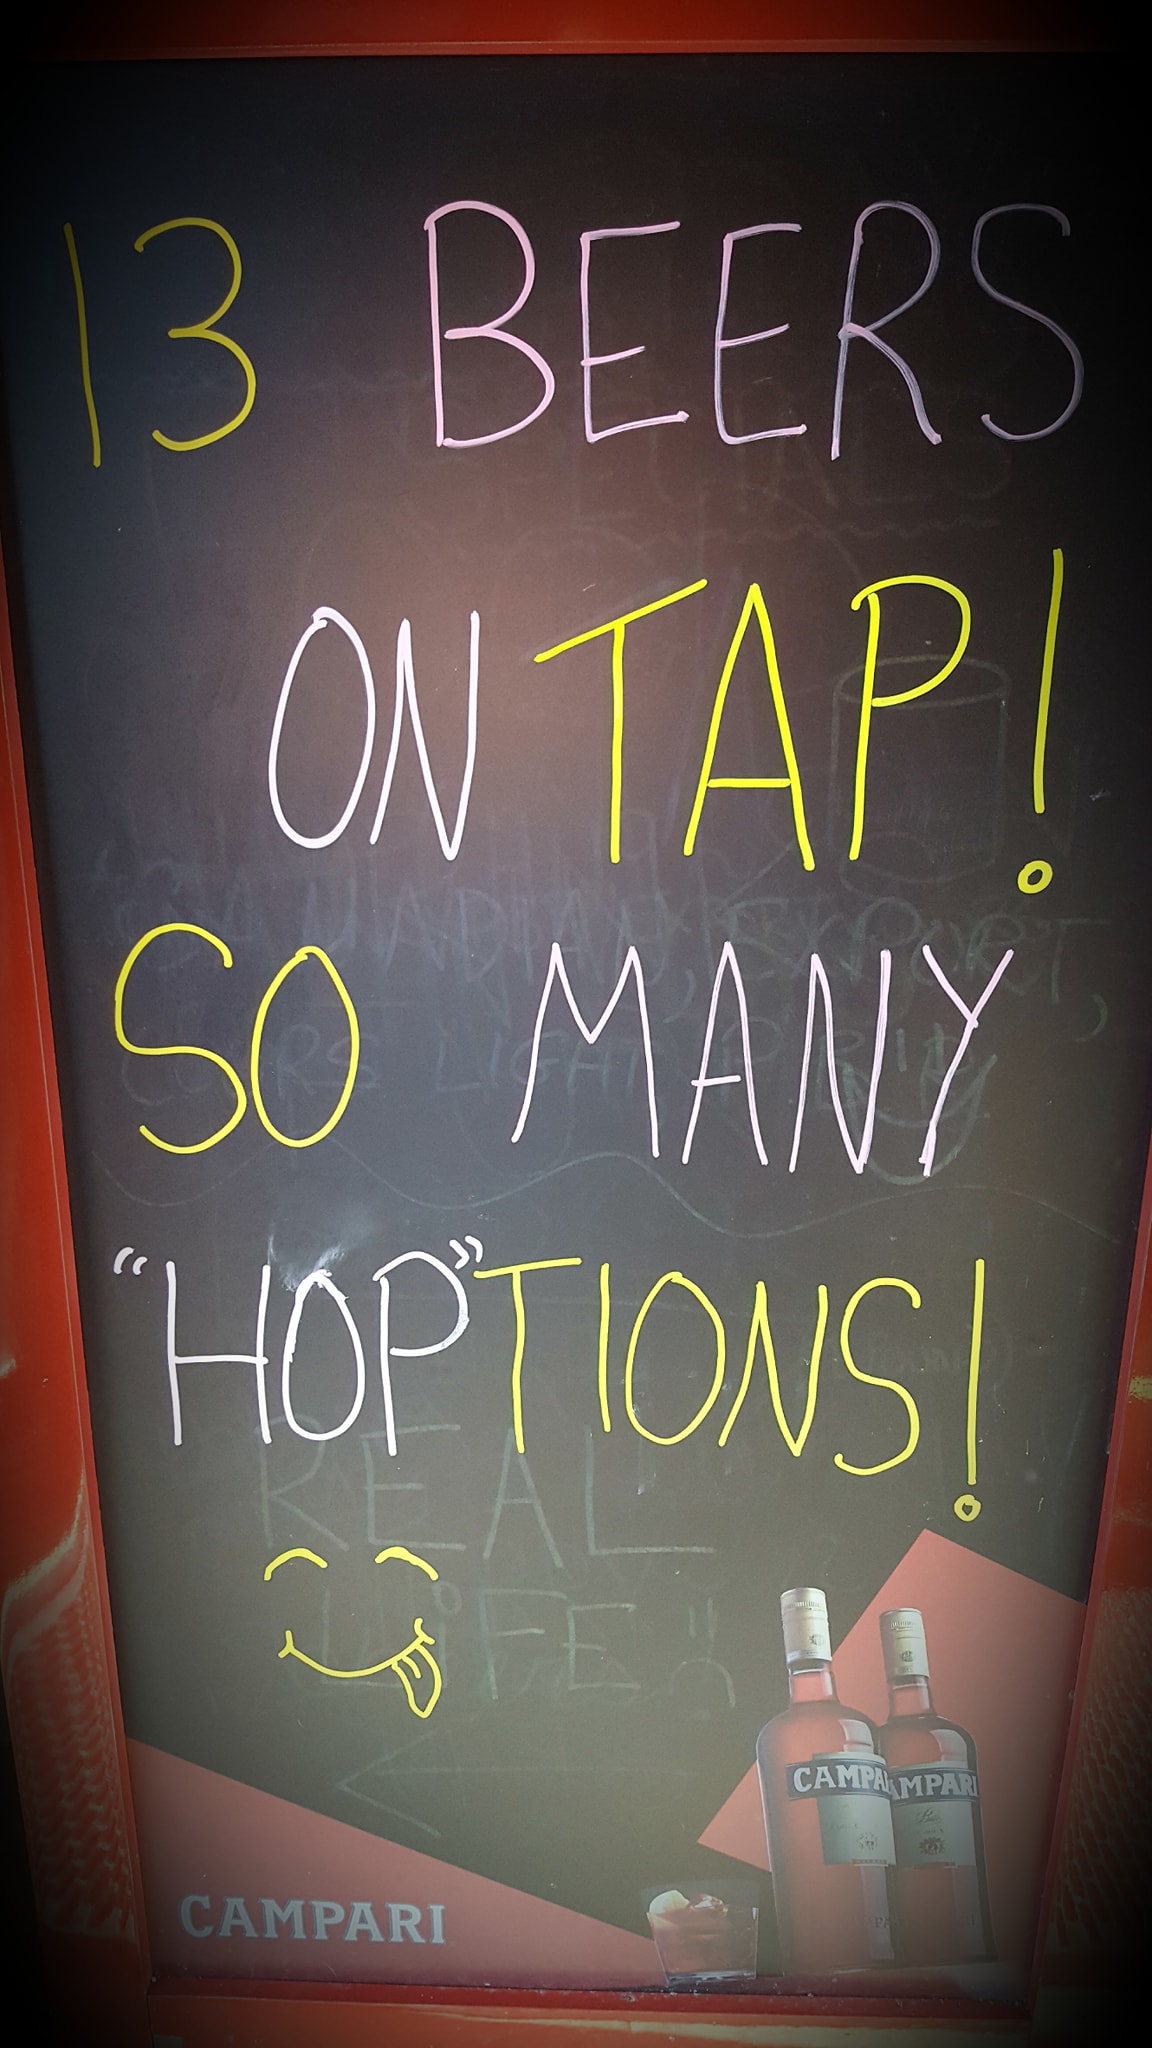 13 BEERS
ON TAP!
SO MANY
"HOP"TIONS!
REAL
LIFE"
CAMPARI
CAMPARI
CAMPARI